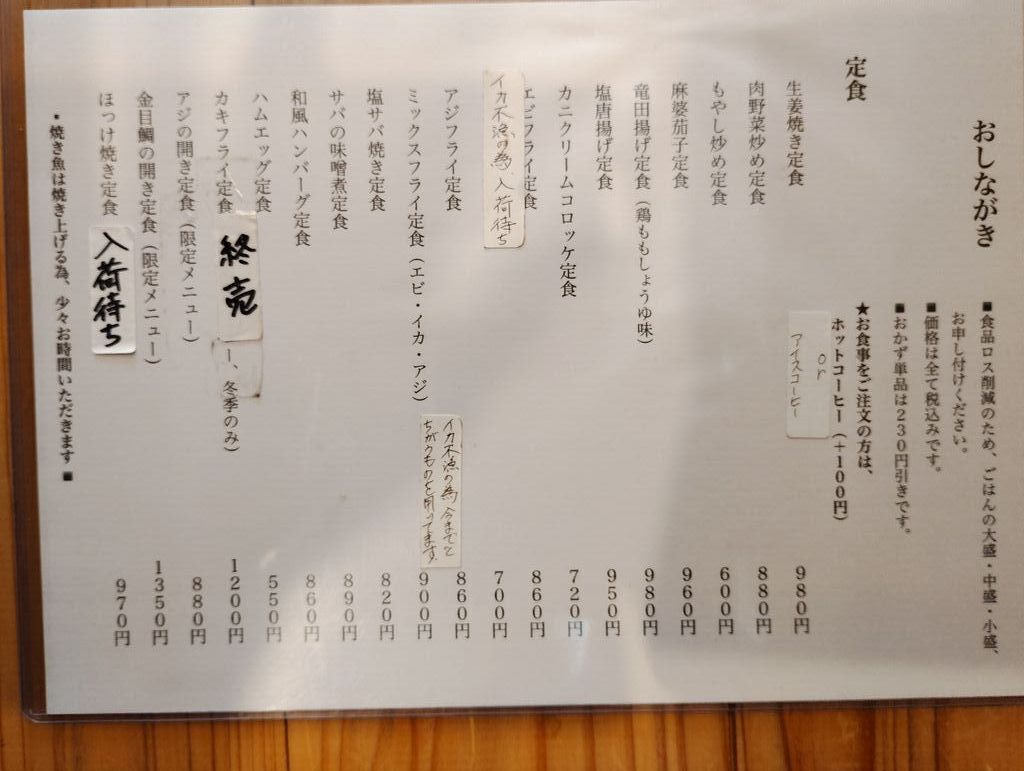 おしながき
■食品ロス削減のため、ごはんの大盛・中盛・小盛、
お申し付けください。
■価格は全て税込みです。
■おかず単品は230円引きです。
★お食事をご注文の方は、
ホットコーヒー（＋100円）
or
アイスコーヒー
定食
生姜焼き定食 980円
肉野菜炒め定食 880円
もやし炒め定食 600円
麻婆茄子定食 960円
竜田揚げ定食（鶏ももしょうゆ味） 980円
塩唐揚げ定食 950円
カニクリームコロッケ定食 720円
エビフライ定食 860円
イカ不漁の為、入荷待ち 700円
アジフライ定食 860円
ミックスフライ定食（エビ・イカ・アジ） 900円
イカ不漁の為今までと
ちがうものを用ってます。
塩サバ焼き定食 820円
サバの味噌煮定食 890円
和風ハンバーグ定食 860円
ハムエッグ定食 550円
カキフライ定食 終売 ー、冬季のみ） 1200円
アジの開き定食（限定メニュー） 880円
金目鯛の開き定食（限定メニュー） 1350円
ほっけ焼き定食 入荷待ち 970円
・焼き魚は焼き上げる為、少々お時間いただきます■